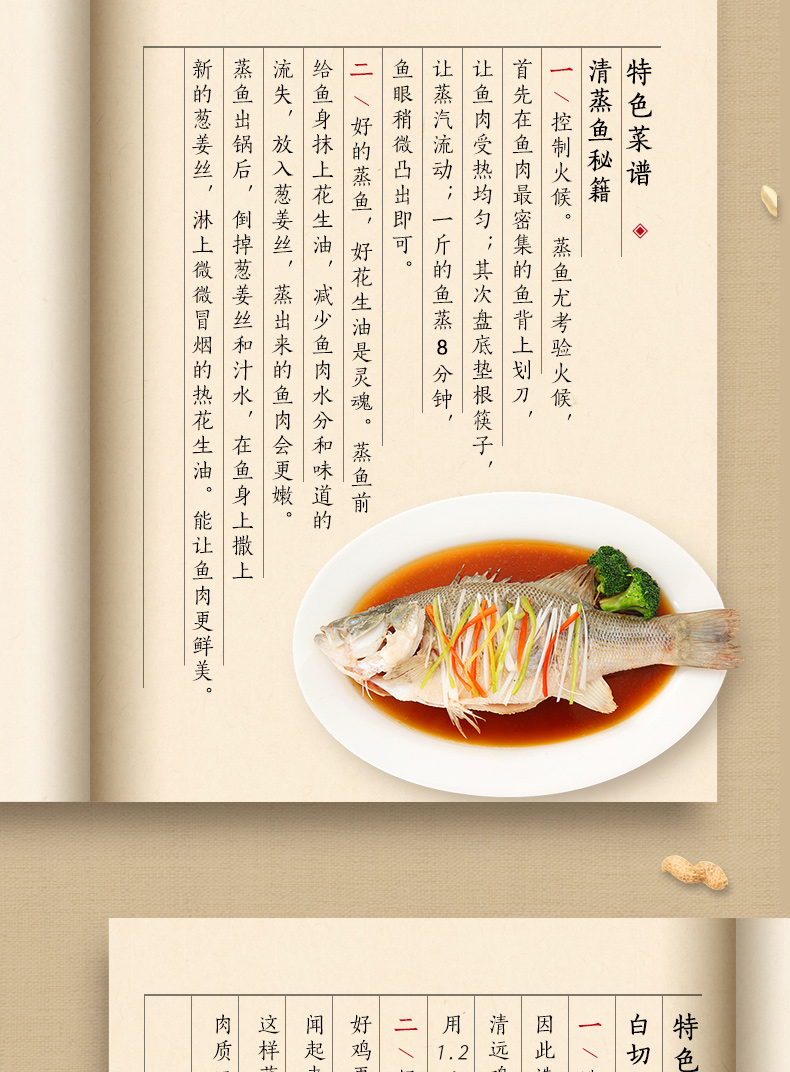 特色菜谱
清蒸鱼秘籍
一\控制火候。蒸鱼尤考验火候，
首先在鱼肉最密集的鱼背上划刀，
让鱼肉受热均匀；其次盘底垫根筷子，
让蒸汽流动；一斤的鱼蒸8分钟，
鱼眼稍微凸出即可。
二\好的蒸鱼，好花生油是灵魂。蒸鱼前
给鱼身抹上花生油，减少鱼肉水分和味道的
流失，放入葱姜丝，蒸出来的鱼肉会更嫩。
蒸鱼出锅后，倒掉葱姜丝和汁水，在鱼身上撒上
新的葱姜丝，淋上微微冒烟的热花生油。能让鱼肉更鲜美。
特色
白切
一\
因此选
清远鸡
用1.2
二\
好鸡再
闻起来
这样蒸
肉质